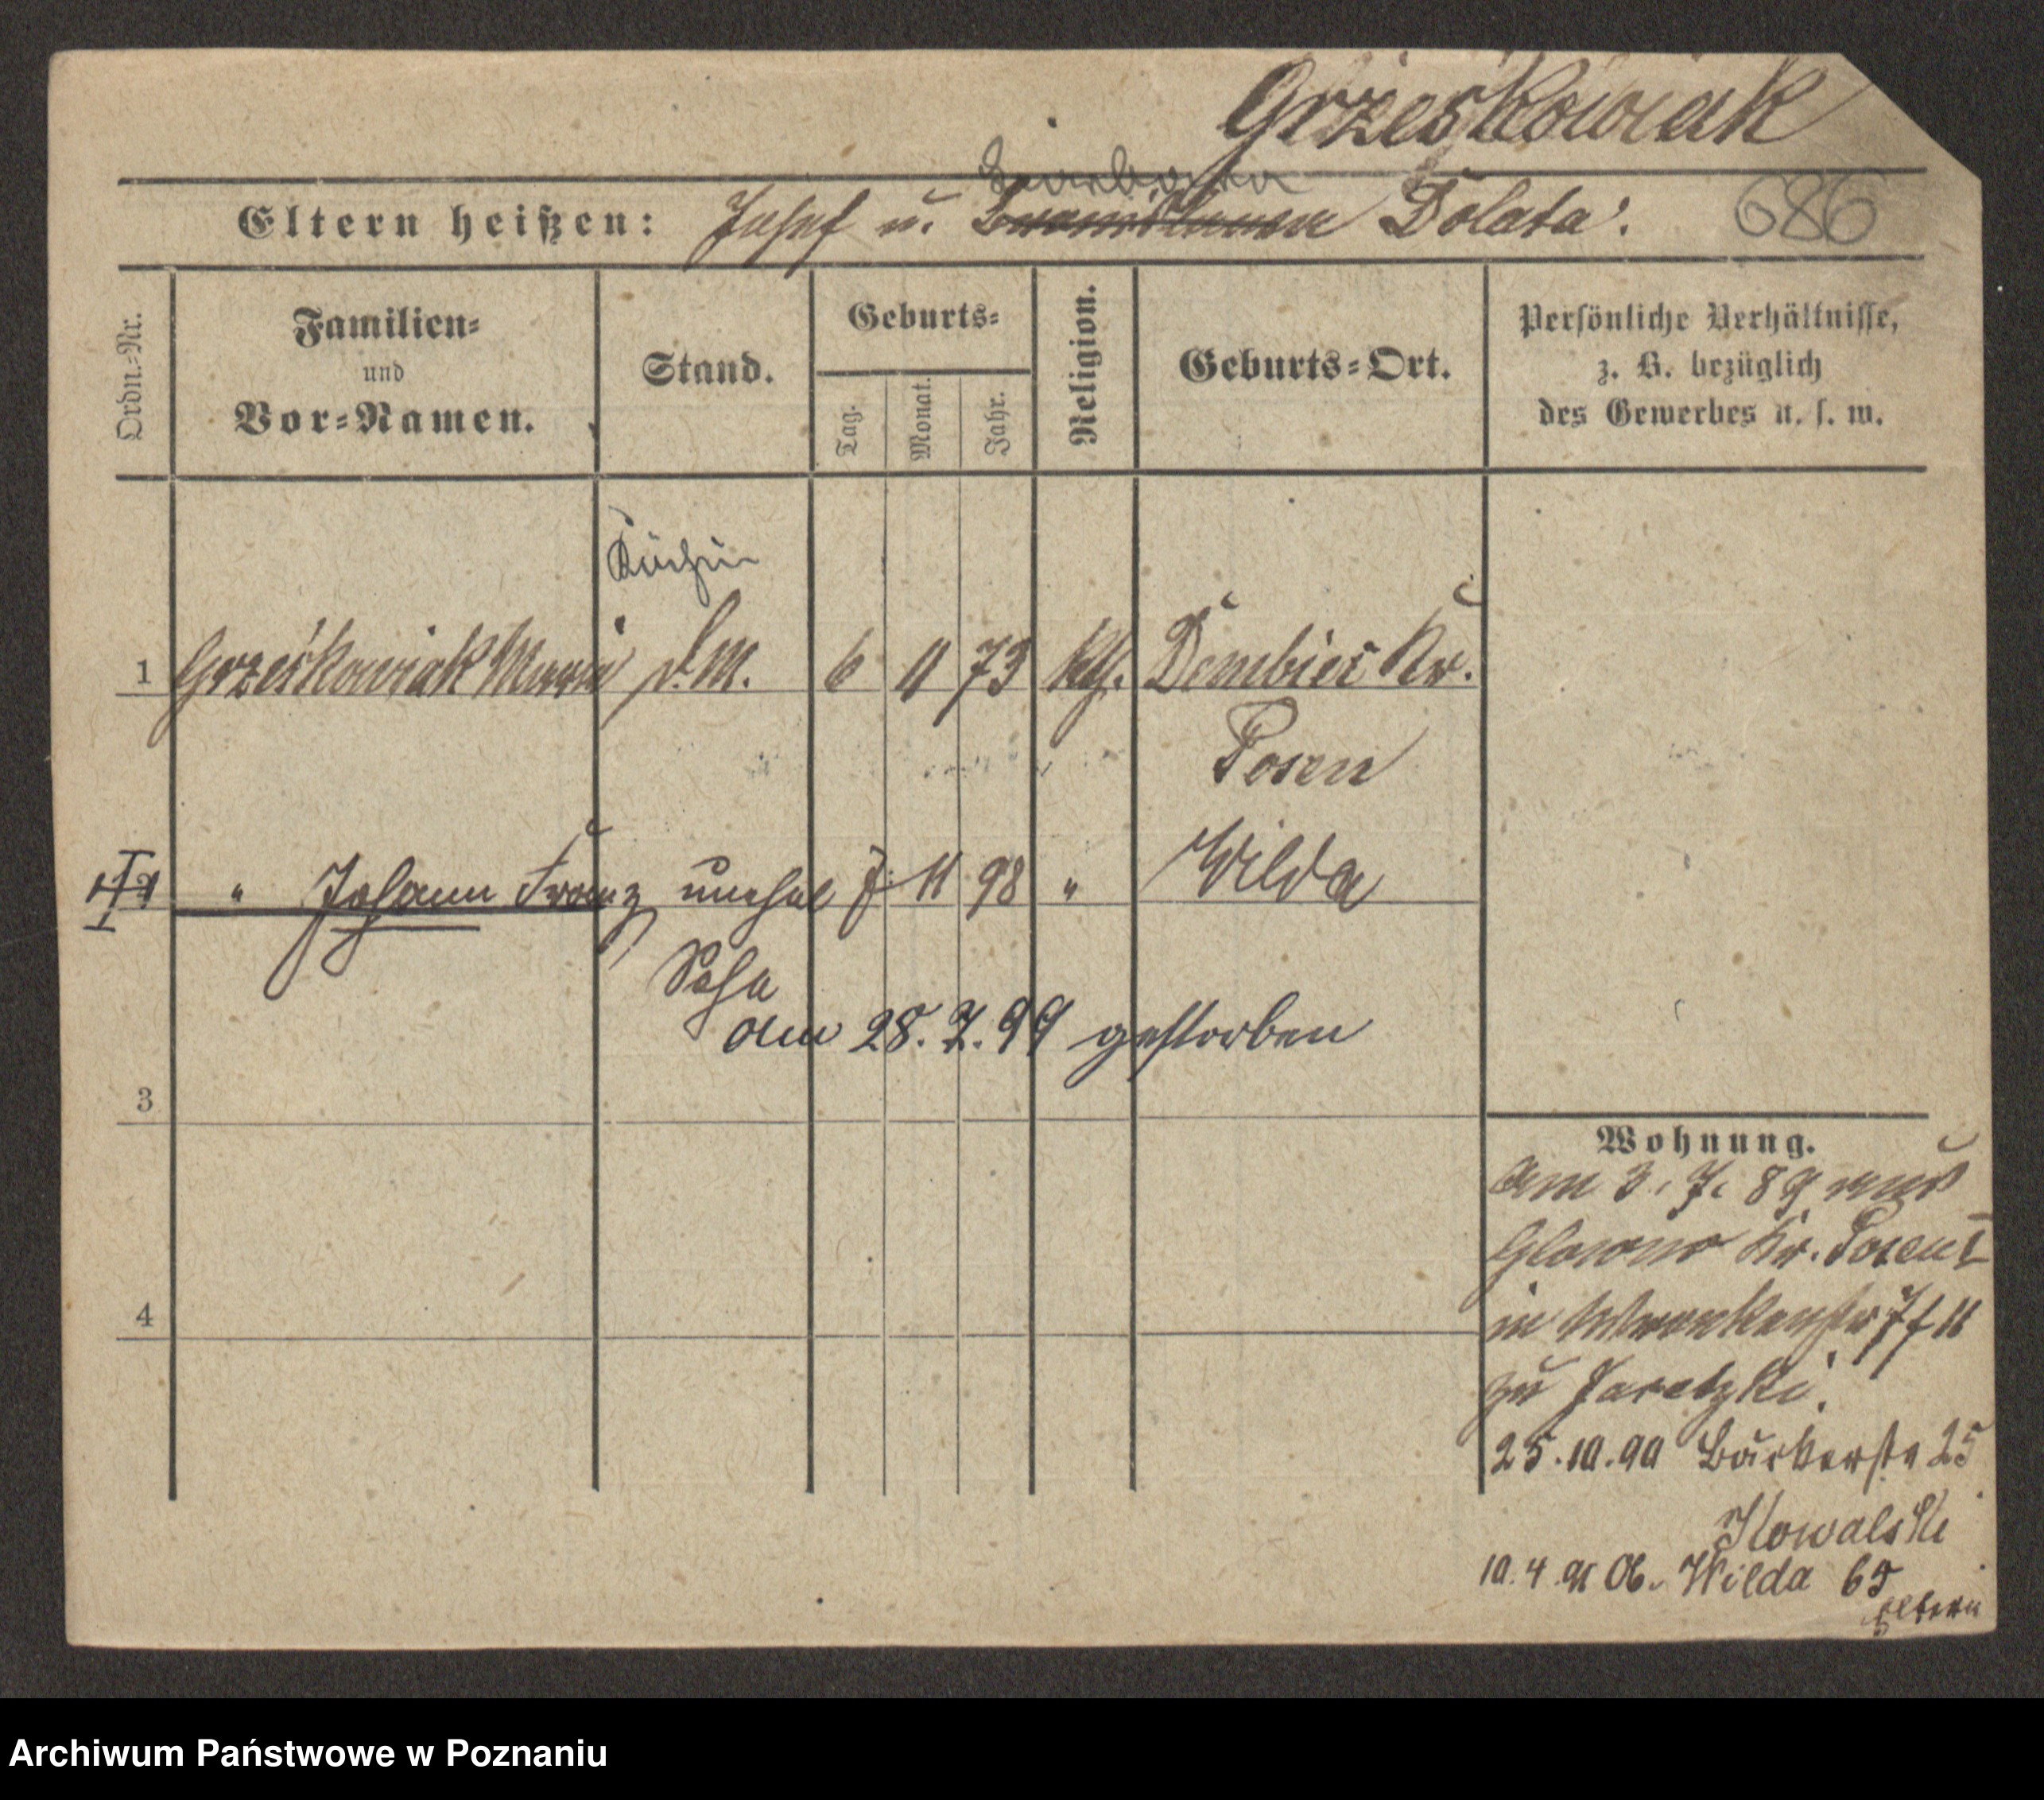 Grześkowiak
Barbara
Eltern heißen: Josef u. Dolata.
686
Ordn.-Nr.
Familien-
und
Vor-Namen.
Stand.
Geburts-
Tag.
Monat.
Jahr.
Religion.
Geburts-Ort.
Persönliche Verhältnisse,
z. B. bezüglich
des Gewerbes u. s. w.
Köchin
1 Grześkowiak Maria d.M. 6 11 73 kth. Dembiec Kr.
Posen
" Johann Franz unehel 7. 11 98 " Wilda
Sohn
am 28. 7. 99 gestorben
3
4
Wohnung.
Am 3. 7. 89 aus
Glowno Kr. Posen
in 11
zu Jaretzki.
25.10.90 Bäckerstr 25
Kowalski
10.4.91 Ob. Wilda 65
Eltern
Archiwum Państwowe w Poznaniu